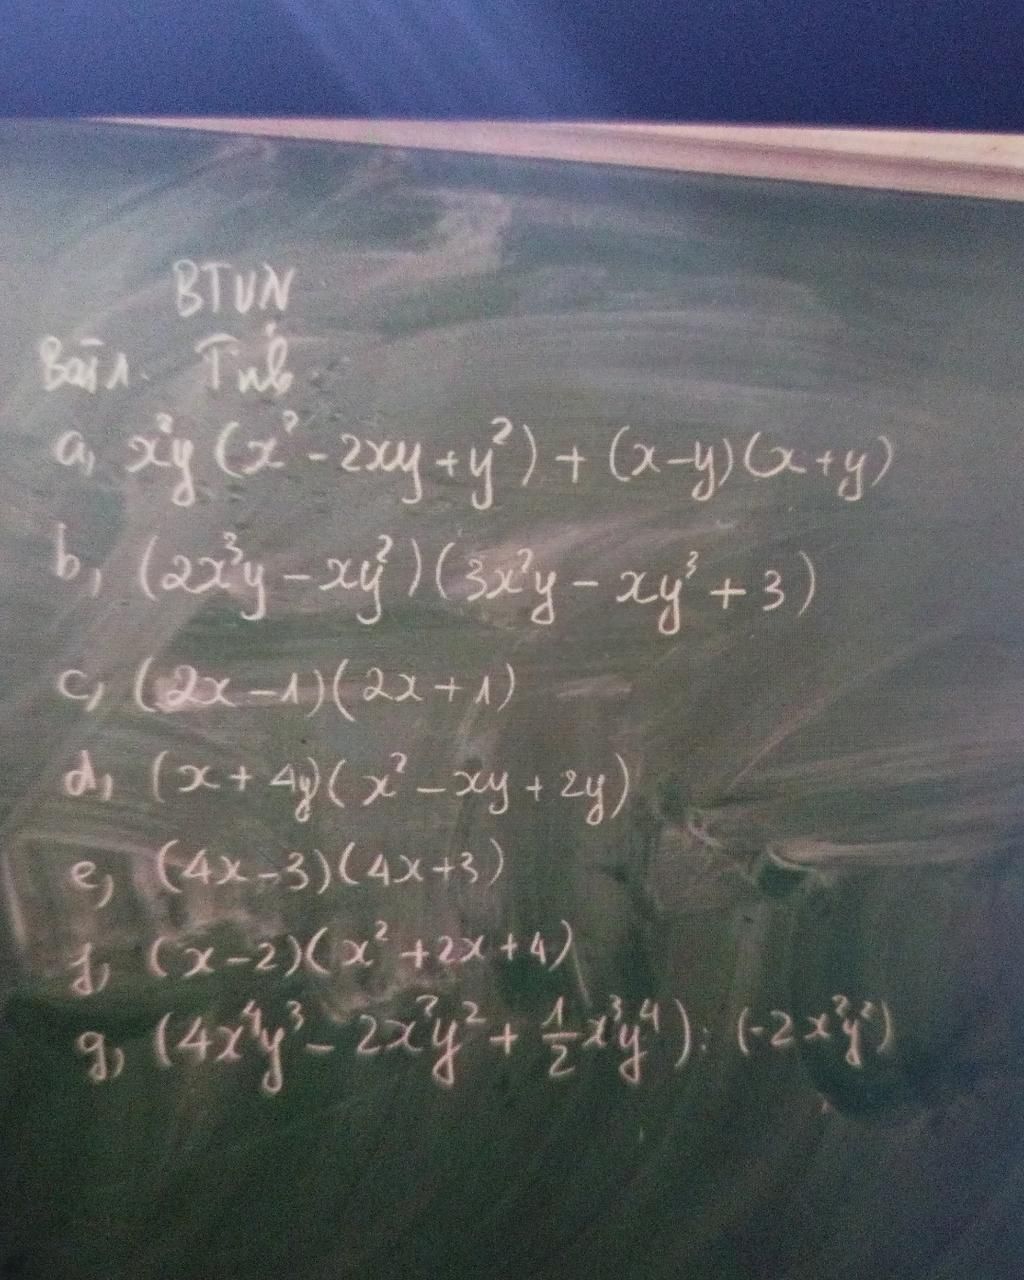 BTVN
Bài 1. Tính
a, x²y (x² - 2xy + y²) + (x-y)(x+y)
b, (2x³y - xy²)(3x²y - xy³ + 3)
c, (2x - 1)(2x + 1)
d, (x + 4y)(x² - xy + 2y)
e, (4x - 3)(4x + 3)
f, (x - 2)(x² + 2x + 4)
g, (4x⁴y³ - 2x²y² + ½x³y⁴) : (-2x²y²)